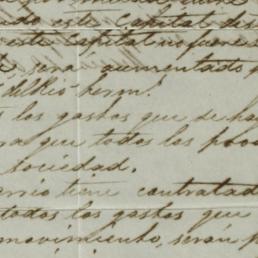 este capital des
este capital no fuese
sera aumentado p
dicho herm.
los gastos que se ha
ra que todos los prod
sociedad.
tiene contratad
todos los gastos que
movimiento, serán p